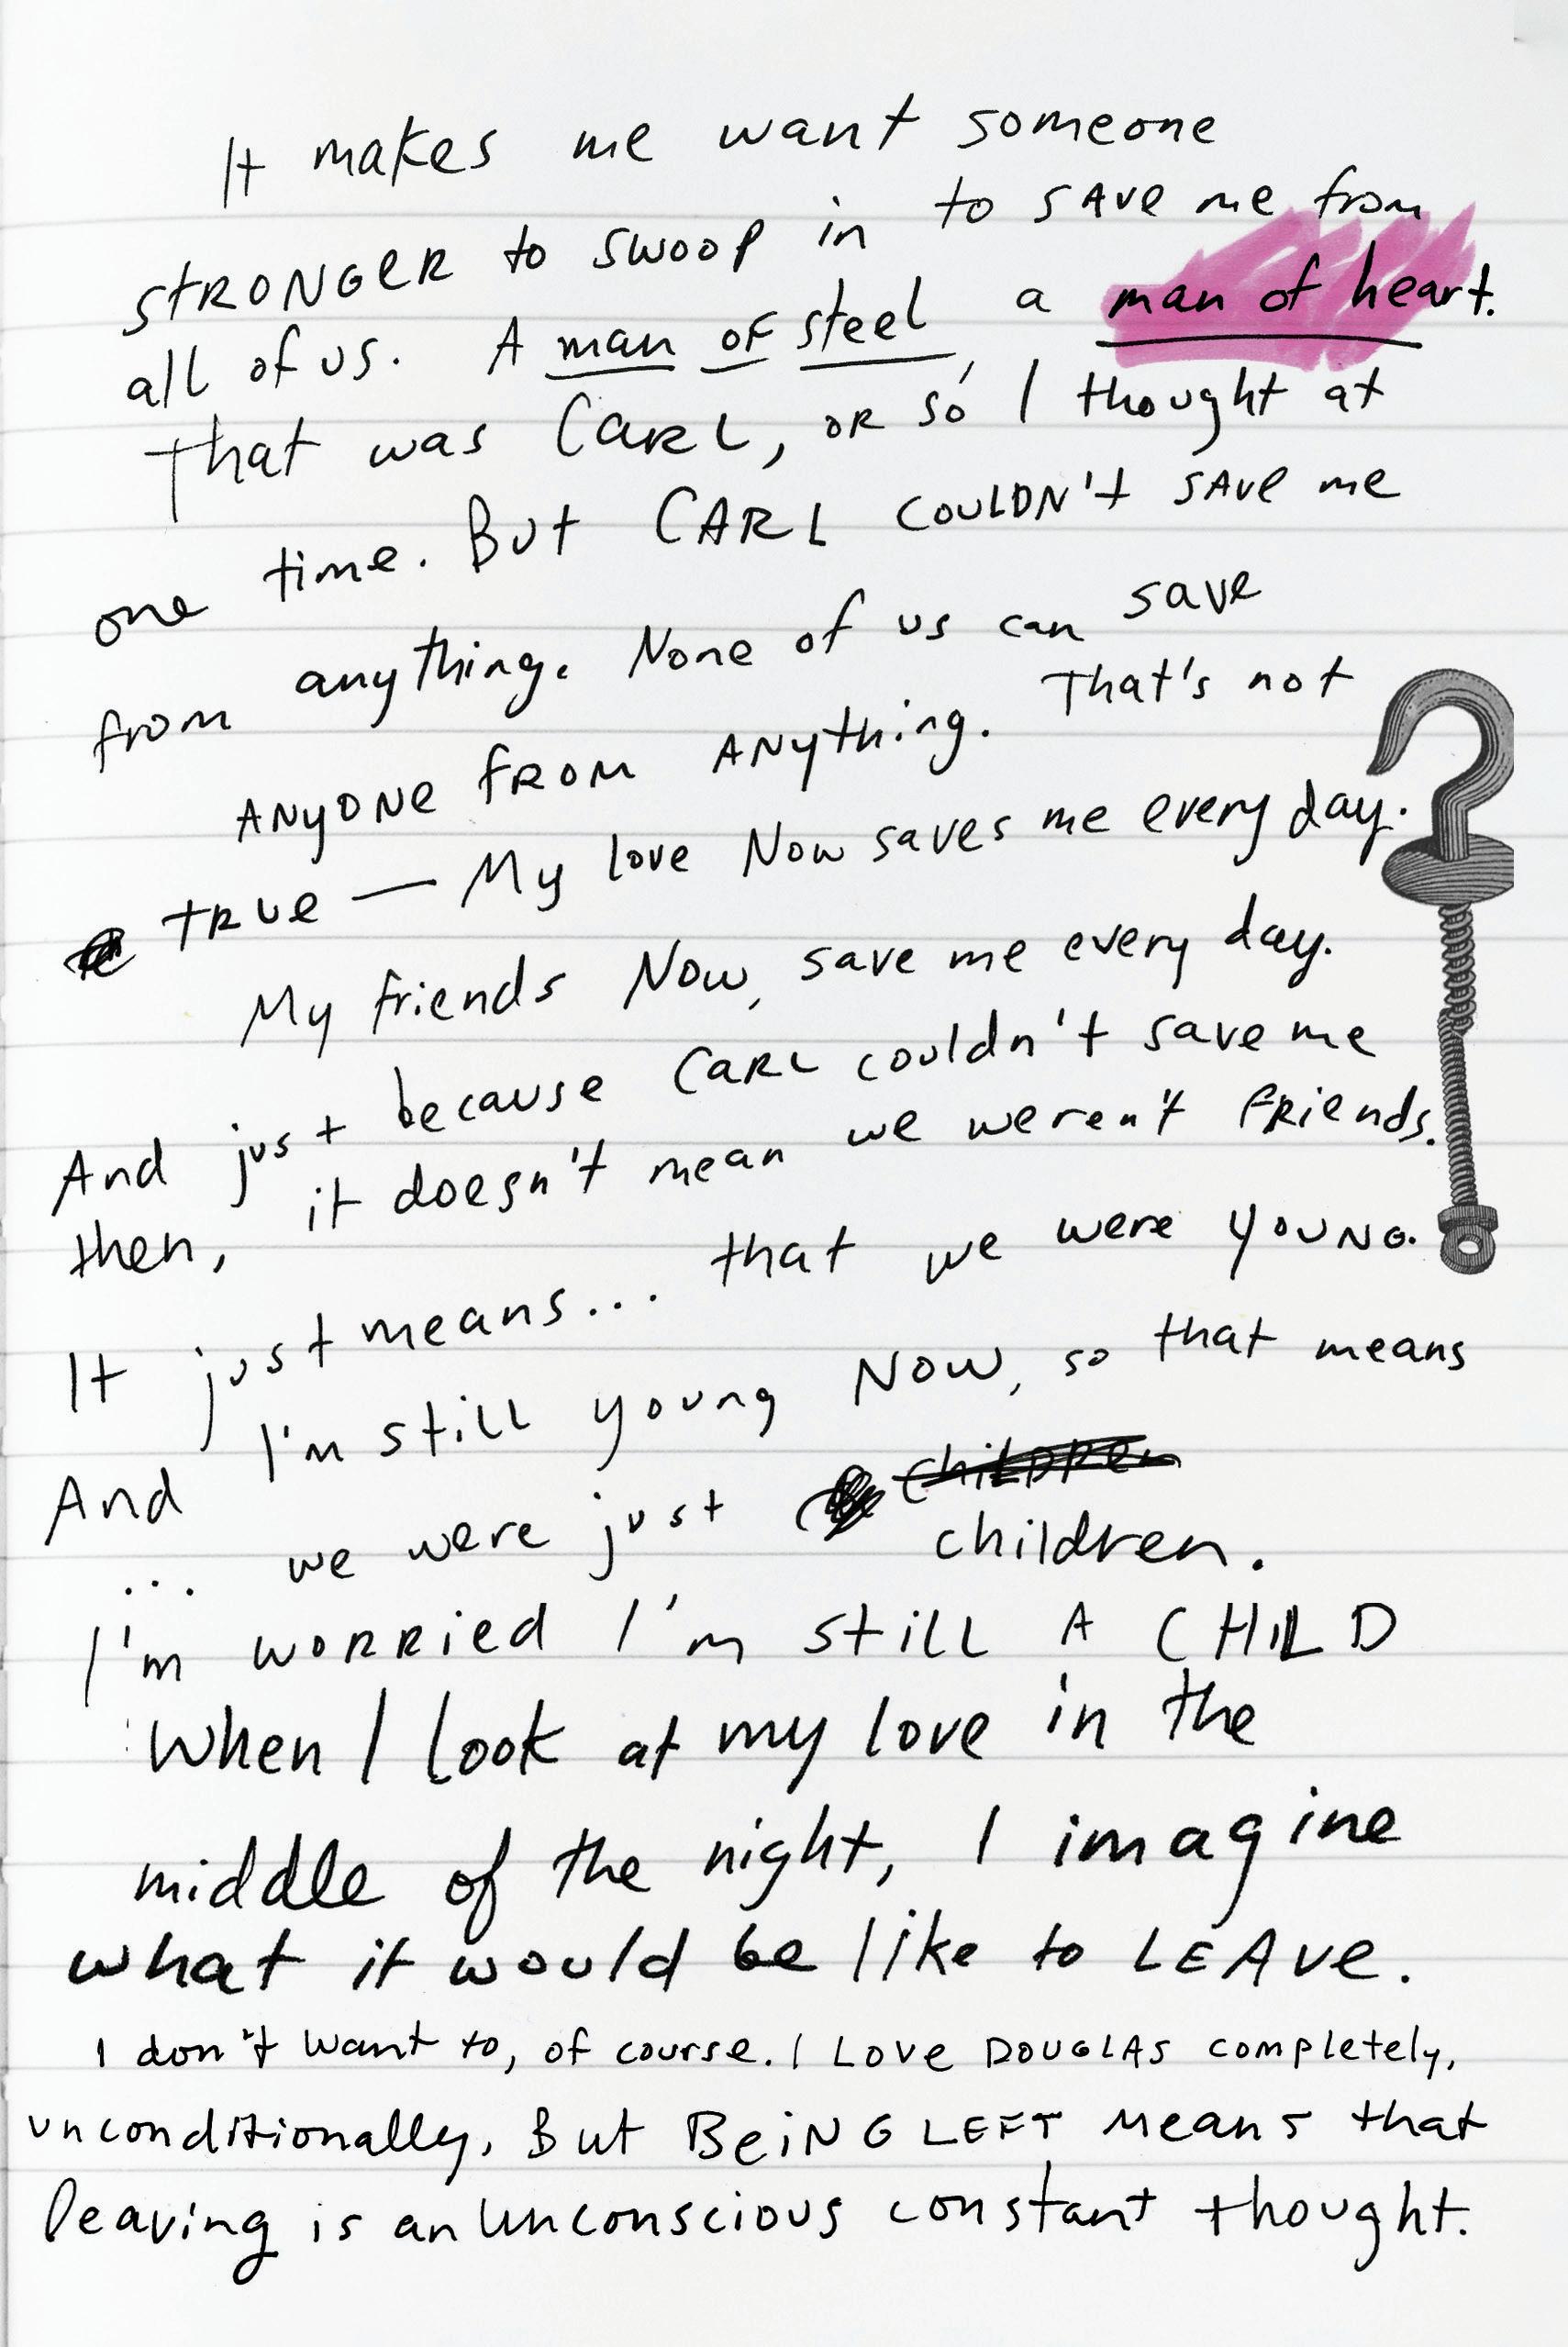 It makes me want someone
stRONGeR to swoop in to sAve me from
all of us. A man of steel, a man of heart.
That was CaRL, oR so I thought at
one time. But CARL COULDN't sAve me
from anything. None of us can save
ANyONe fROM ANything. That's not
tRUe — My love Now saves me every day.
My friends Now, save me every day.
And just because CaRL couldn't save me
then, it doesn't mean we weren't fRiends.
It just means... that we were yOUNG.
And I'm still young NOW, so that means
... we were just chiLDRen
children.
I'm woRRied I'm still A CHILD
When I look at my love in the
middle of the night, I imagine
what it would be like to LEAve.
I don't want to, of course. I Love DOUGLAS completely,
unconditionally, But BeiNG LEFT means that
leaving is an unconscious constant thought.